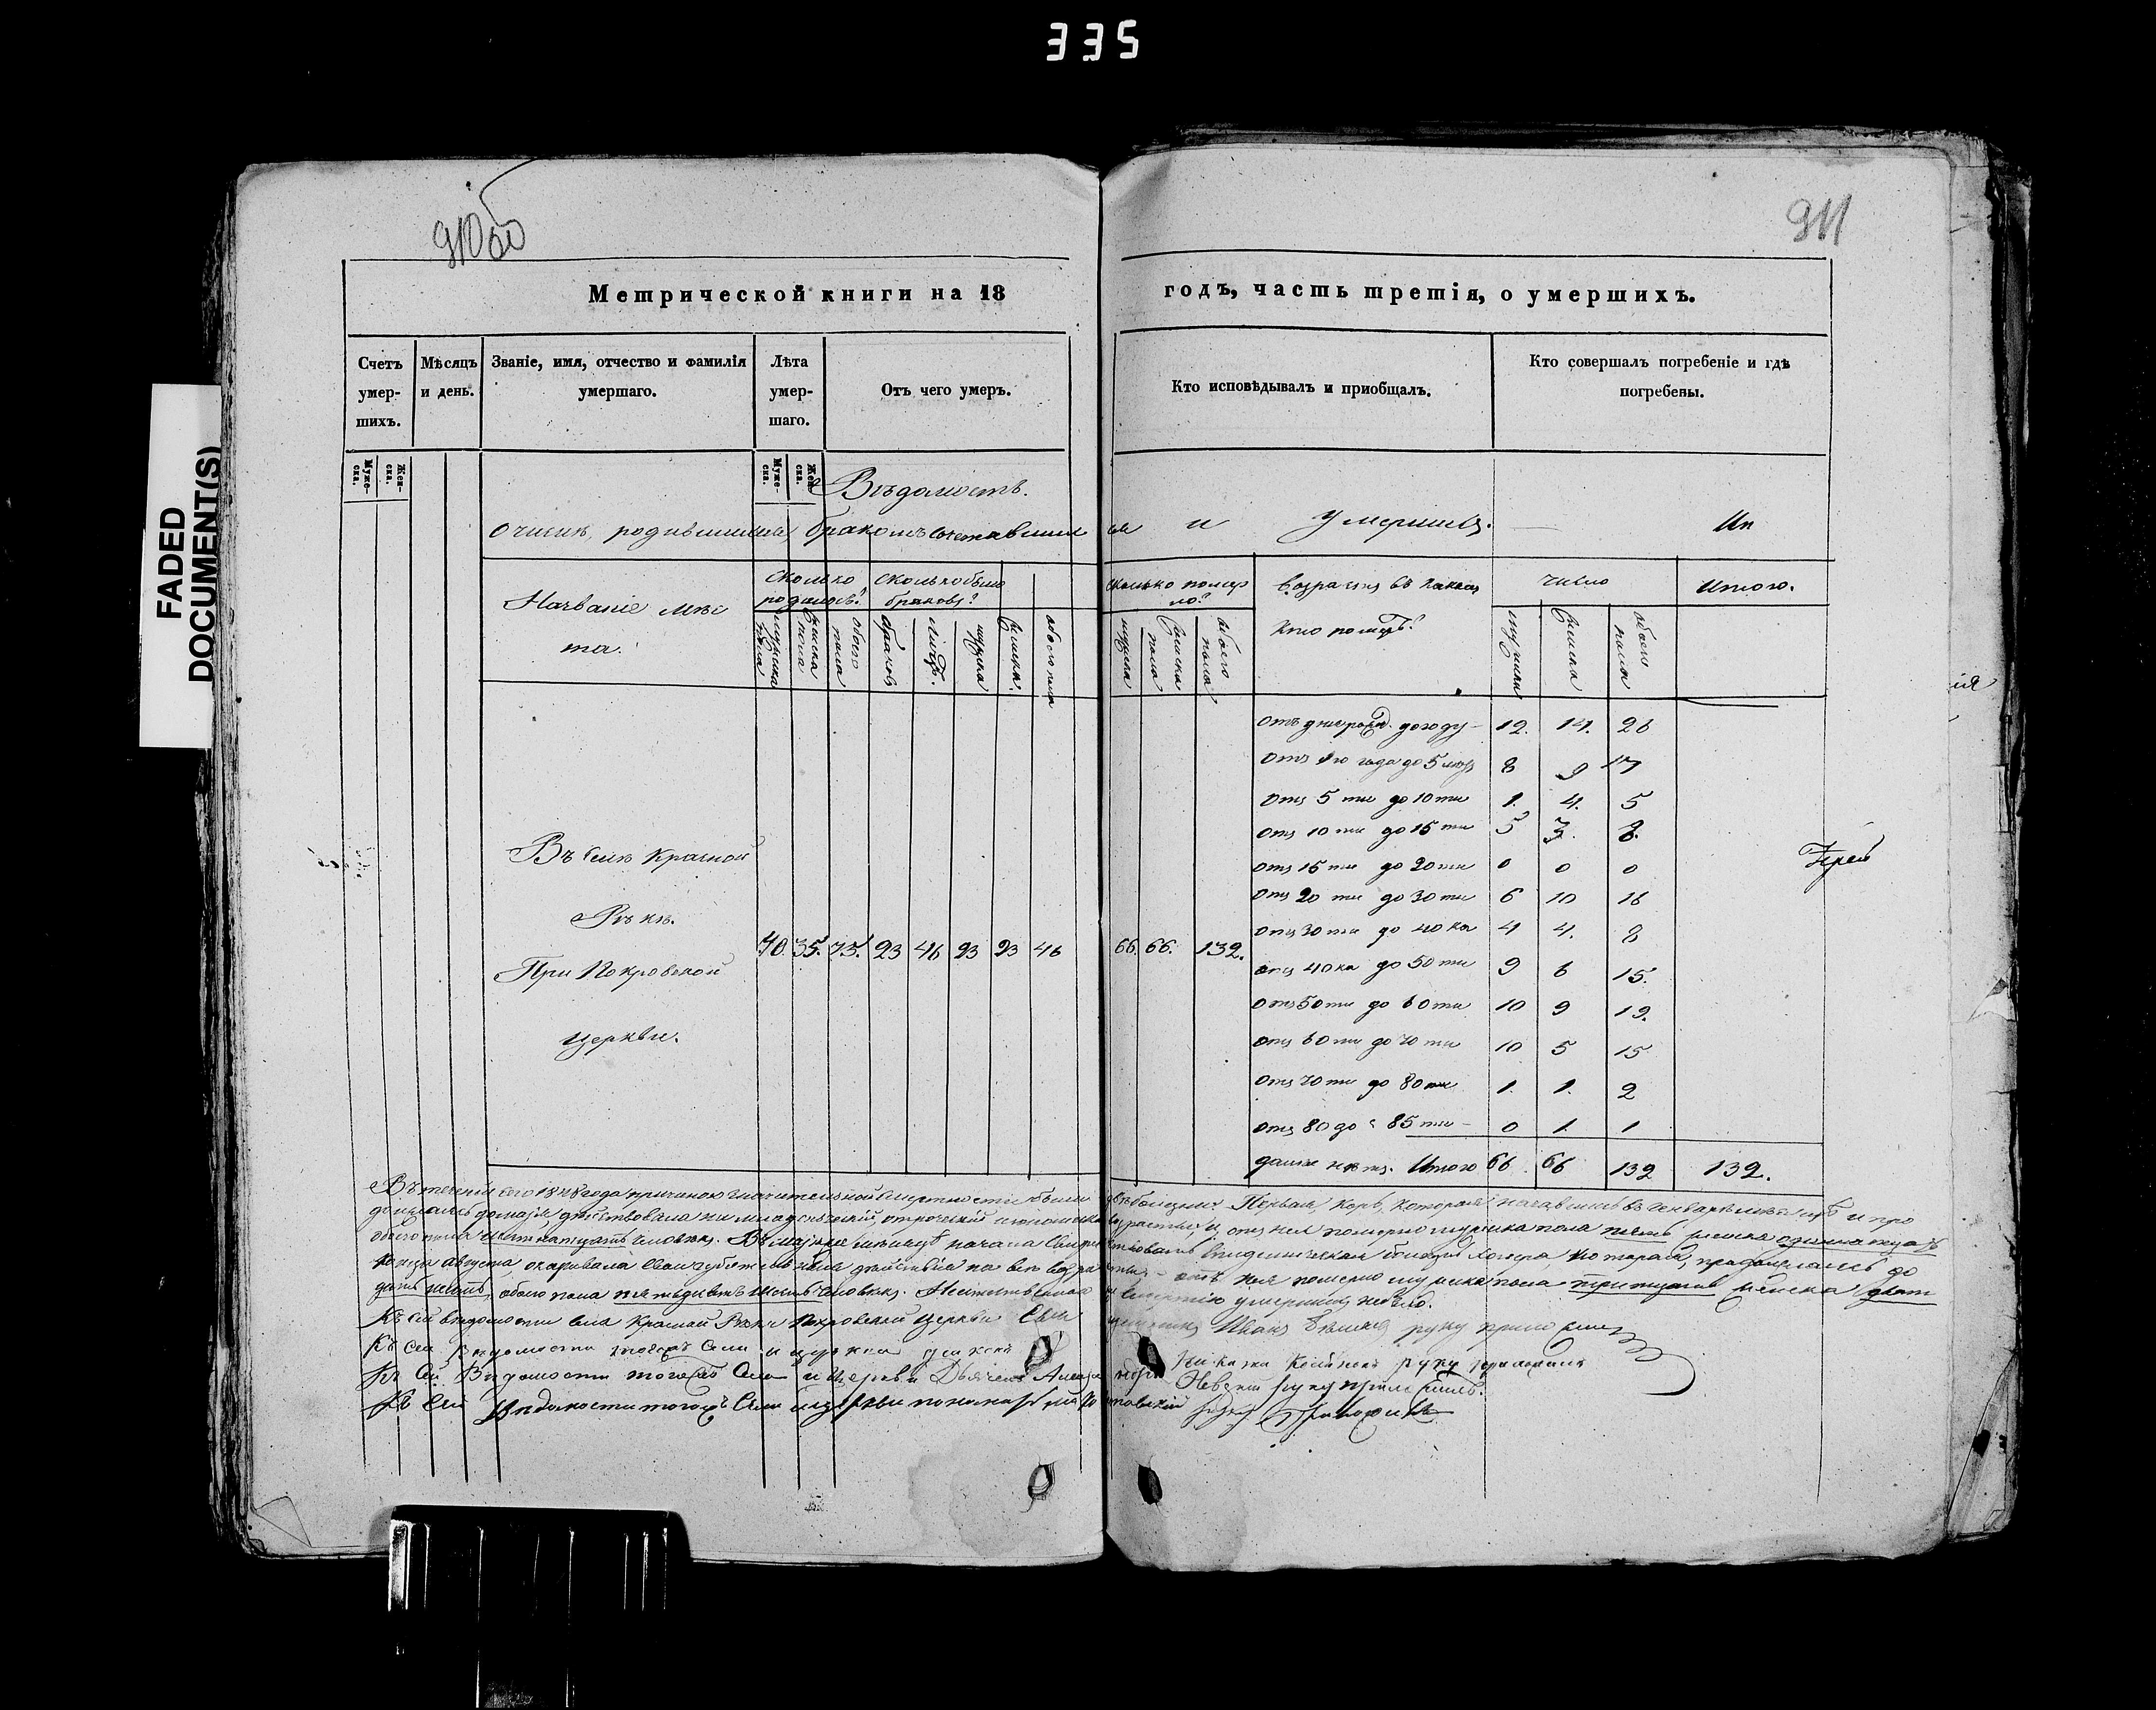 335
FADED
DOCUMENT(S)
910об
911
Метрической книги на 18 годъ, часть третія, о умершихъ.
Счетъ умер-шихъ.
Мѣсяцъ и день.
Званіе, имя, отчество и фамилія умершаго.
Лѣта умер-шаго.
Отъ чего умеръ.
Кто исповѣдывалъ и приобщалъ.
Кто совершалъ погребеніе и гдѣ погребены.
Муже-ска.
Жен-ска.
Муже-ска.
Жен-ска.
Вѣдомость.
О числѣ родившихся бракомъ сочетавшихся и умершихъ.
Названіе мѣста.
сколько родилось?
сколько было браковъ?
сколько помер ло?
возрастъ въ какомъ кто померъ?
число
Итого.
мужска пола
женска пола
обоего пола
браковъ
лицъ.
мужска
женска
обоего пола
мужска
женска пола
обоего пола
мужска
женска
обоего пола
Въ селѣ Красной
Рѣкѣ.
При Покровской
Церкви.
40. 35. 75. 23 46 23 23 46 66. 66. 132.
отъ дня рожд. до году 12. 14. 26
отъ 1го года до 5 лѣтъ 8 9 17
отъ 5 ти до 10 ти 1. 4. 5
отъ 10 ти до 15 ти 5 3. 8.
отъ 15 ти до 20 ти 0 0 0
отъ 20 ти до 30 ти 6 10 16
отъ 30 ти до 40 ка 4 4. 8
отъ 40 ка до 50 ти 9 6 15.
отъ 50 ти до 60 ти 10 9 19.
отъ 60 ти до 70 ти 10 5 15
отъ 70 ти до 80 ти 1. 1. 2
отъ 80 до 85 ти 0 1 1
далѣе нѣтъ. Итого 66. 66 132 132.
Въ теченіи сего 1848 года причиною значительной смертности были двѣ болѣзни: Первая, Корь, которая начавшись въ Генварѣ мѣсяцѣ и про
должаясь до мая, дѣйствовала на младенческій, отроческій и юношескій возрасты, и отъ нея померло мужска пола пять женска одинадцать
обоего пола шестнатцать человѣкъ. Въ маѣ же мѣсяцѣ начала свирѣпствовать Эпидемическая болѣзнь Холера, которая, продолжаясь до
конца Августа, оказывала свои губительныя дѣйствія на всѣ возрасты, отъ нея померло мужска пола тритцать женска дват
цать шесть, обоего пола пятьдесятъ шесть человѣкъ. умершихъ небыло.
Къ сей вѣдомости села Красной Рѣки Покровской Церкви Священникъ Иванъ руку приложилъ
Къ сей Вѣдомости тогожъ Села и церкви руку приложилъ
Къ сей Вѣдомости тогожъ Села и Церкви Дьячекъ Александръ Невскій руку приложилъ.
Къ сей Вѣдомости тогожъ Села и церкви пономарь руку приложилъ